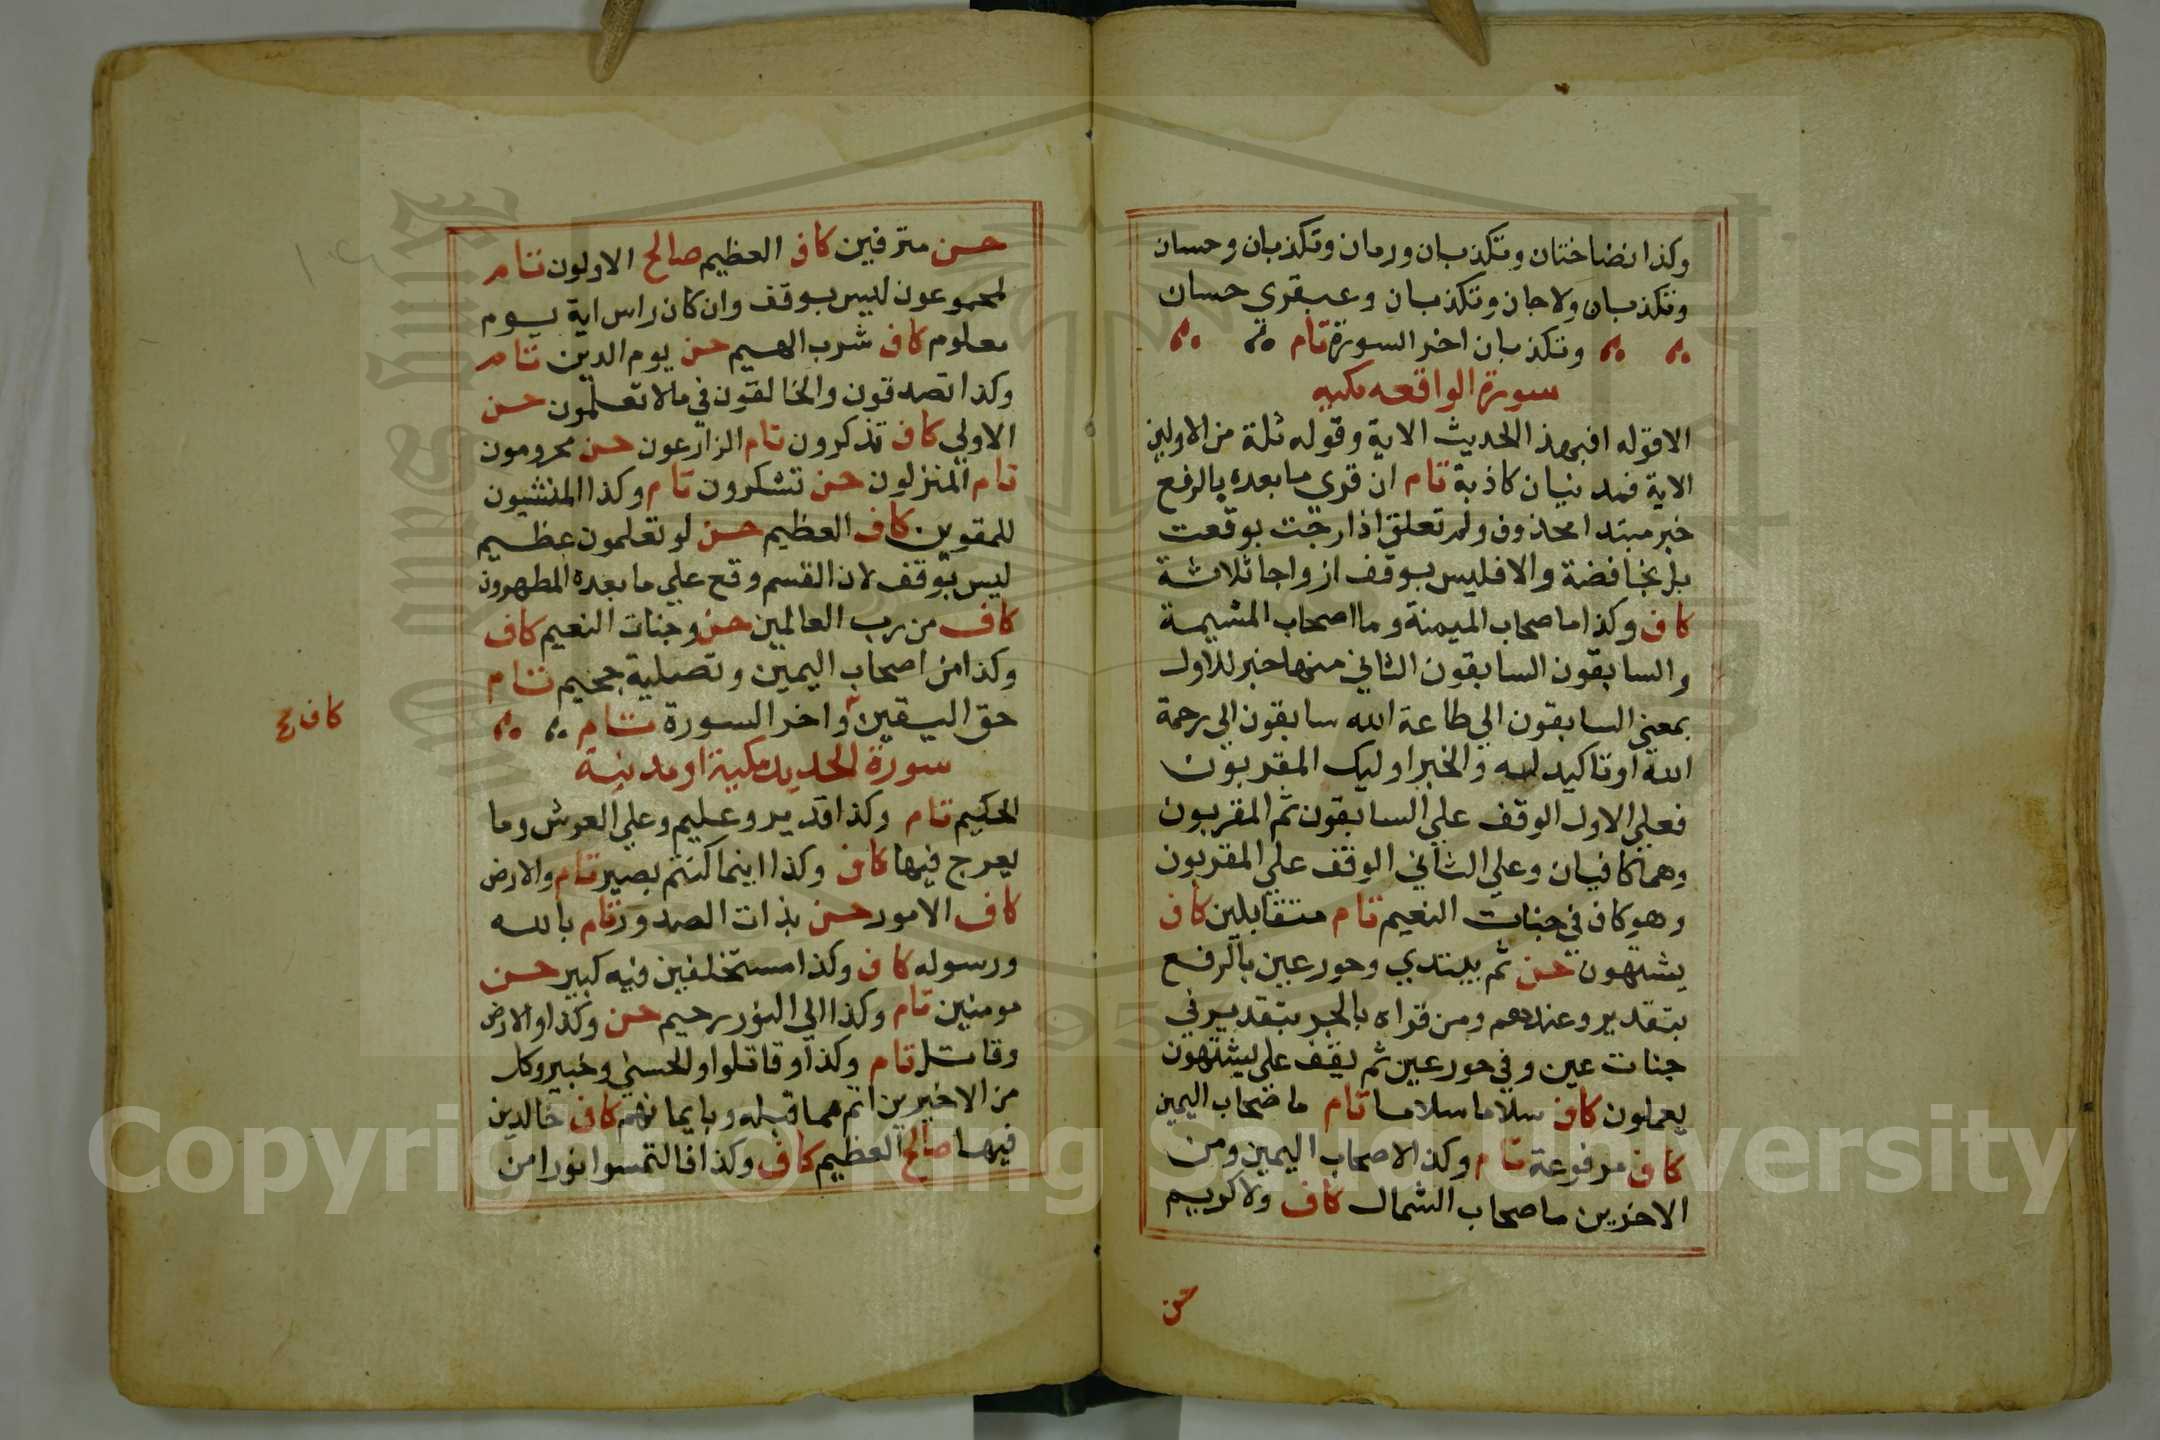 وكذا نضاختان وتكذبان ورمان وتكذبان وحسان
وتكذبان ولا جان وتكذبان وعبقري حسان
وتكذبان اخر السورة تام
سورة الواقعه مكيه
الا قوله افبهذا الحديث الاية وقوله ثلة من الاولين
الاية فمدنيان كاذبة تام ان قري ما بعده بالرفع
خبر مبتدا محذوف ولم تعلق اذا رجت بوقعت
بل بخافضة والا فليس بوقف ازواجا ثلاثة
كاف وكذا ما صحاب الميمنة وما اصحاب المشيمة
والسابقون السابقون الثاني منهما خبر للاول
بمعني السابقون الي طاعة الله سابقون الي رحمة
الله او تاكيد له والخبر اوليك المقربون
فعلي الاول الوقف علي السابقون ثم المقربون
وهما كافيان وعلي الثاني الوقف علي المقربون
وهو كاف في جنات النعيم تام متقابلين كاف
يشتهون حسن ثم يبتدي وحور عين بالرفع
بتقدير وعندهم ومن قراه بالجر بتقدير في
جنات عين وفي حور عين ثم يقف علي يشتهون
يعملون كاف سلاما سلاما تام ما صحاب اليمين
كاف مرفوعة تام وكذا لاصحاب اليمين ومن
الاخرين ما صحاب الشمال كاف ولا كريم
حسن
حسن مترفين كاف العظيم صالح الاولون تام
لمجموعون ليس بوقف وان كان راس اية يوم
معلوم كاف شرب الهيم حسن يوم الدين تام
وكذا تصدقون والخالقون في ما لا تعلمون حسن
الاولي كاف تذكرون تام الزارعون حسن محرومون
تام المنزلون حسن تشكرون تام وكذا المنشيون
للمقوين كاف العظيم حسن لو تعلمون عظيم
ليس بوقف لان القسم وقع علي ما بعده المطهرون
كاف من رب العالمين حسن وجنات النعيم كاف
وكذا من اصحاب اليمين وتصلية جحيم تام
حق اليقين واخر السورة تام
سورة الحديد مكية او مدنية
الحكيم تام وكذا قدير وعليم وعلي العرش وما
يعرج فيها كاف وكذا اينما كنتم بصير تام والارض
كاف الامور حسن بذات الصدور تام بالله
ورسوله كاف وكذا مستخلفين فيه كبير حسن
مومنين تام وكذا الي النور رحيم حسن وكذا والارض
وقاتل تام وكذا وقاتلوا والحسني وخبير وكل
من الاخيرين اتم مما قبله وبايمانهم كاف خالدين
فيها صالح العظيم كاف وكذا فالتمسوا نورا من
كاف
King Saud University
1957
Copyright © King Saud University